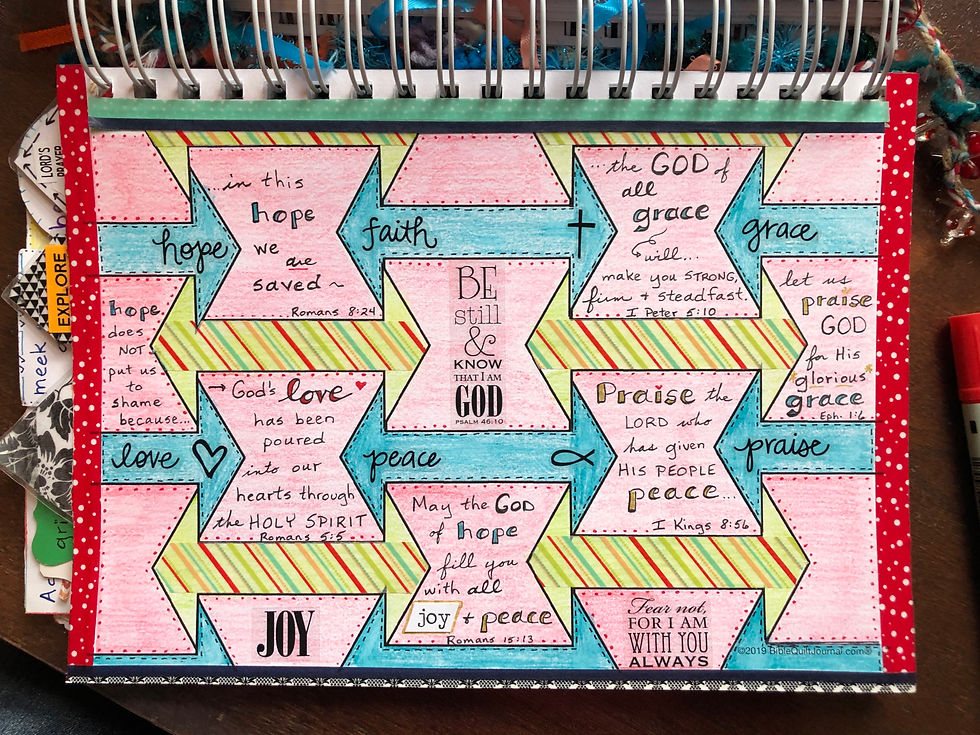 ...in this
hope
we are
saved ~
Romans 8:24
...the GOD of
all
grace
will...
make you STRONG,
firm + steadfast.
I Peter 5:10
hope
faith
grace
hope
does
NOT
put us
to
shame
because...
BE
still
&
KNOW
THAT I AM
GOD
PSALM 46:10
let us
praise
GOD
for His
glorious
grace
Eph. 1:6
→ God's love
has been
poured
into our
hearts through
the HOLY SPIRIT
Romans 5:5
Praise the
LORD who
has given
HIS PEOPLE
peace...
I Kings 8:56
love
peace
praise
May the GOD
of hope
fill you
with all
joy + peace
Romans 15:13
JOY
Fear not,
FOR I AM
WITH YOU
ALWAYS
©2019 BibleQuiltJournal.com®
LORD'S
PRAYER
EXPLORE
meek